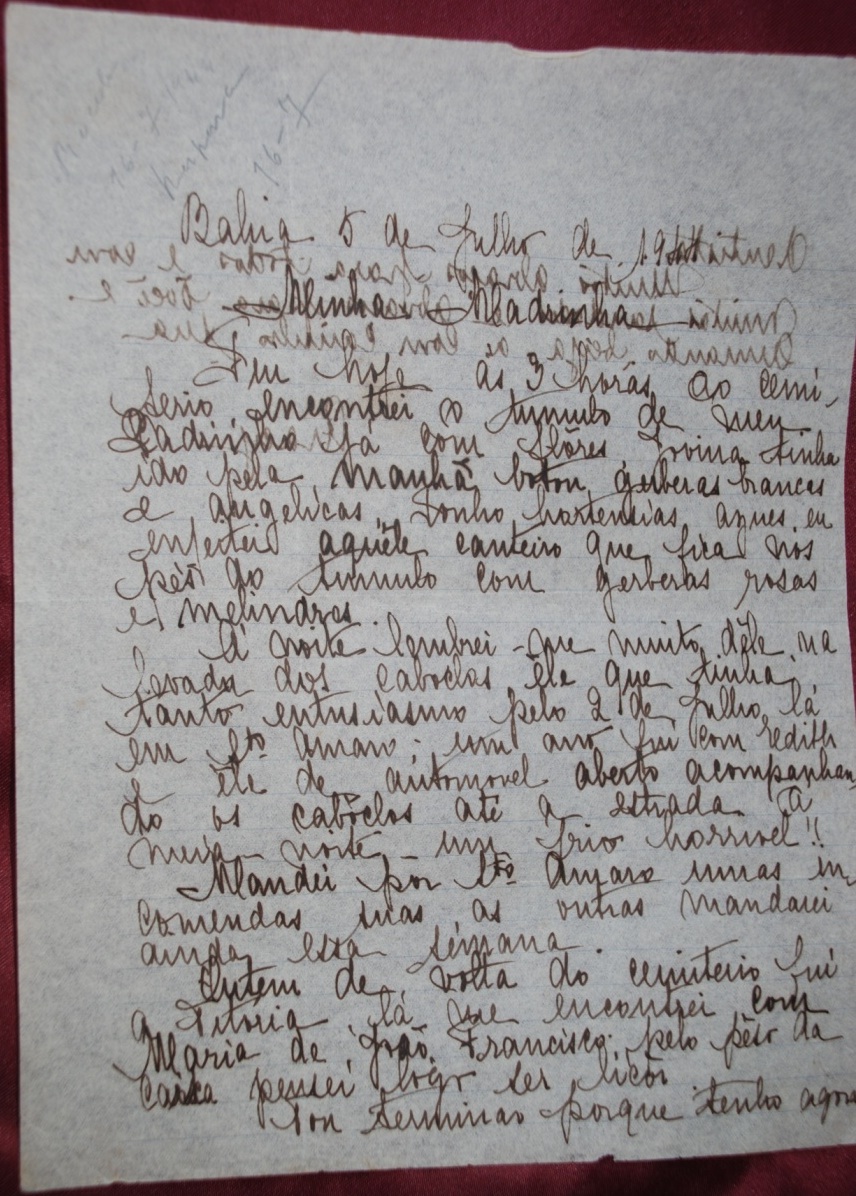 16-7
16-7
Bahia 5 de Julho de 1944
Minha Madrinha
Fui hoje ás 3 horas ao cemi-
terio, encontrei o tumulo de meu
Padrinho já com flôres, Jovina tinha
ido pela manhã botou gerberas brancas
e angelicas, Tonho hortensias azues, eu
enfeitei aquêle canteiro que fica nos
pés do tumulo com gerberas rosas
e melindres.
Á noite lembrei-me muito dêle na
levada dos caboclos êle que tinha
tanto entusiasmo pelo 2 de Julho, lá
em Sto Amaro; um ano fui com Edith
e êle de automovel aberto acompanhan-
do os cabôclos até a estrada á
meia-noite um frio horrivel!!
Mandei por Sto Amaro umas en-
comendas suas as outras mandarei
ainda esta semana.
Ontem de volta do cemiterio fui
a Vitória lá me encontrei com
Maria de João Francisco; pelo pêso da
carta pensei logo ser
Vou terminar porque tenho agora